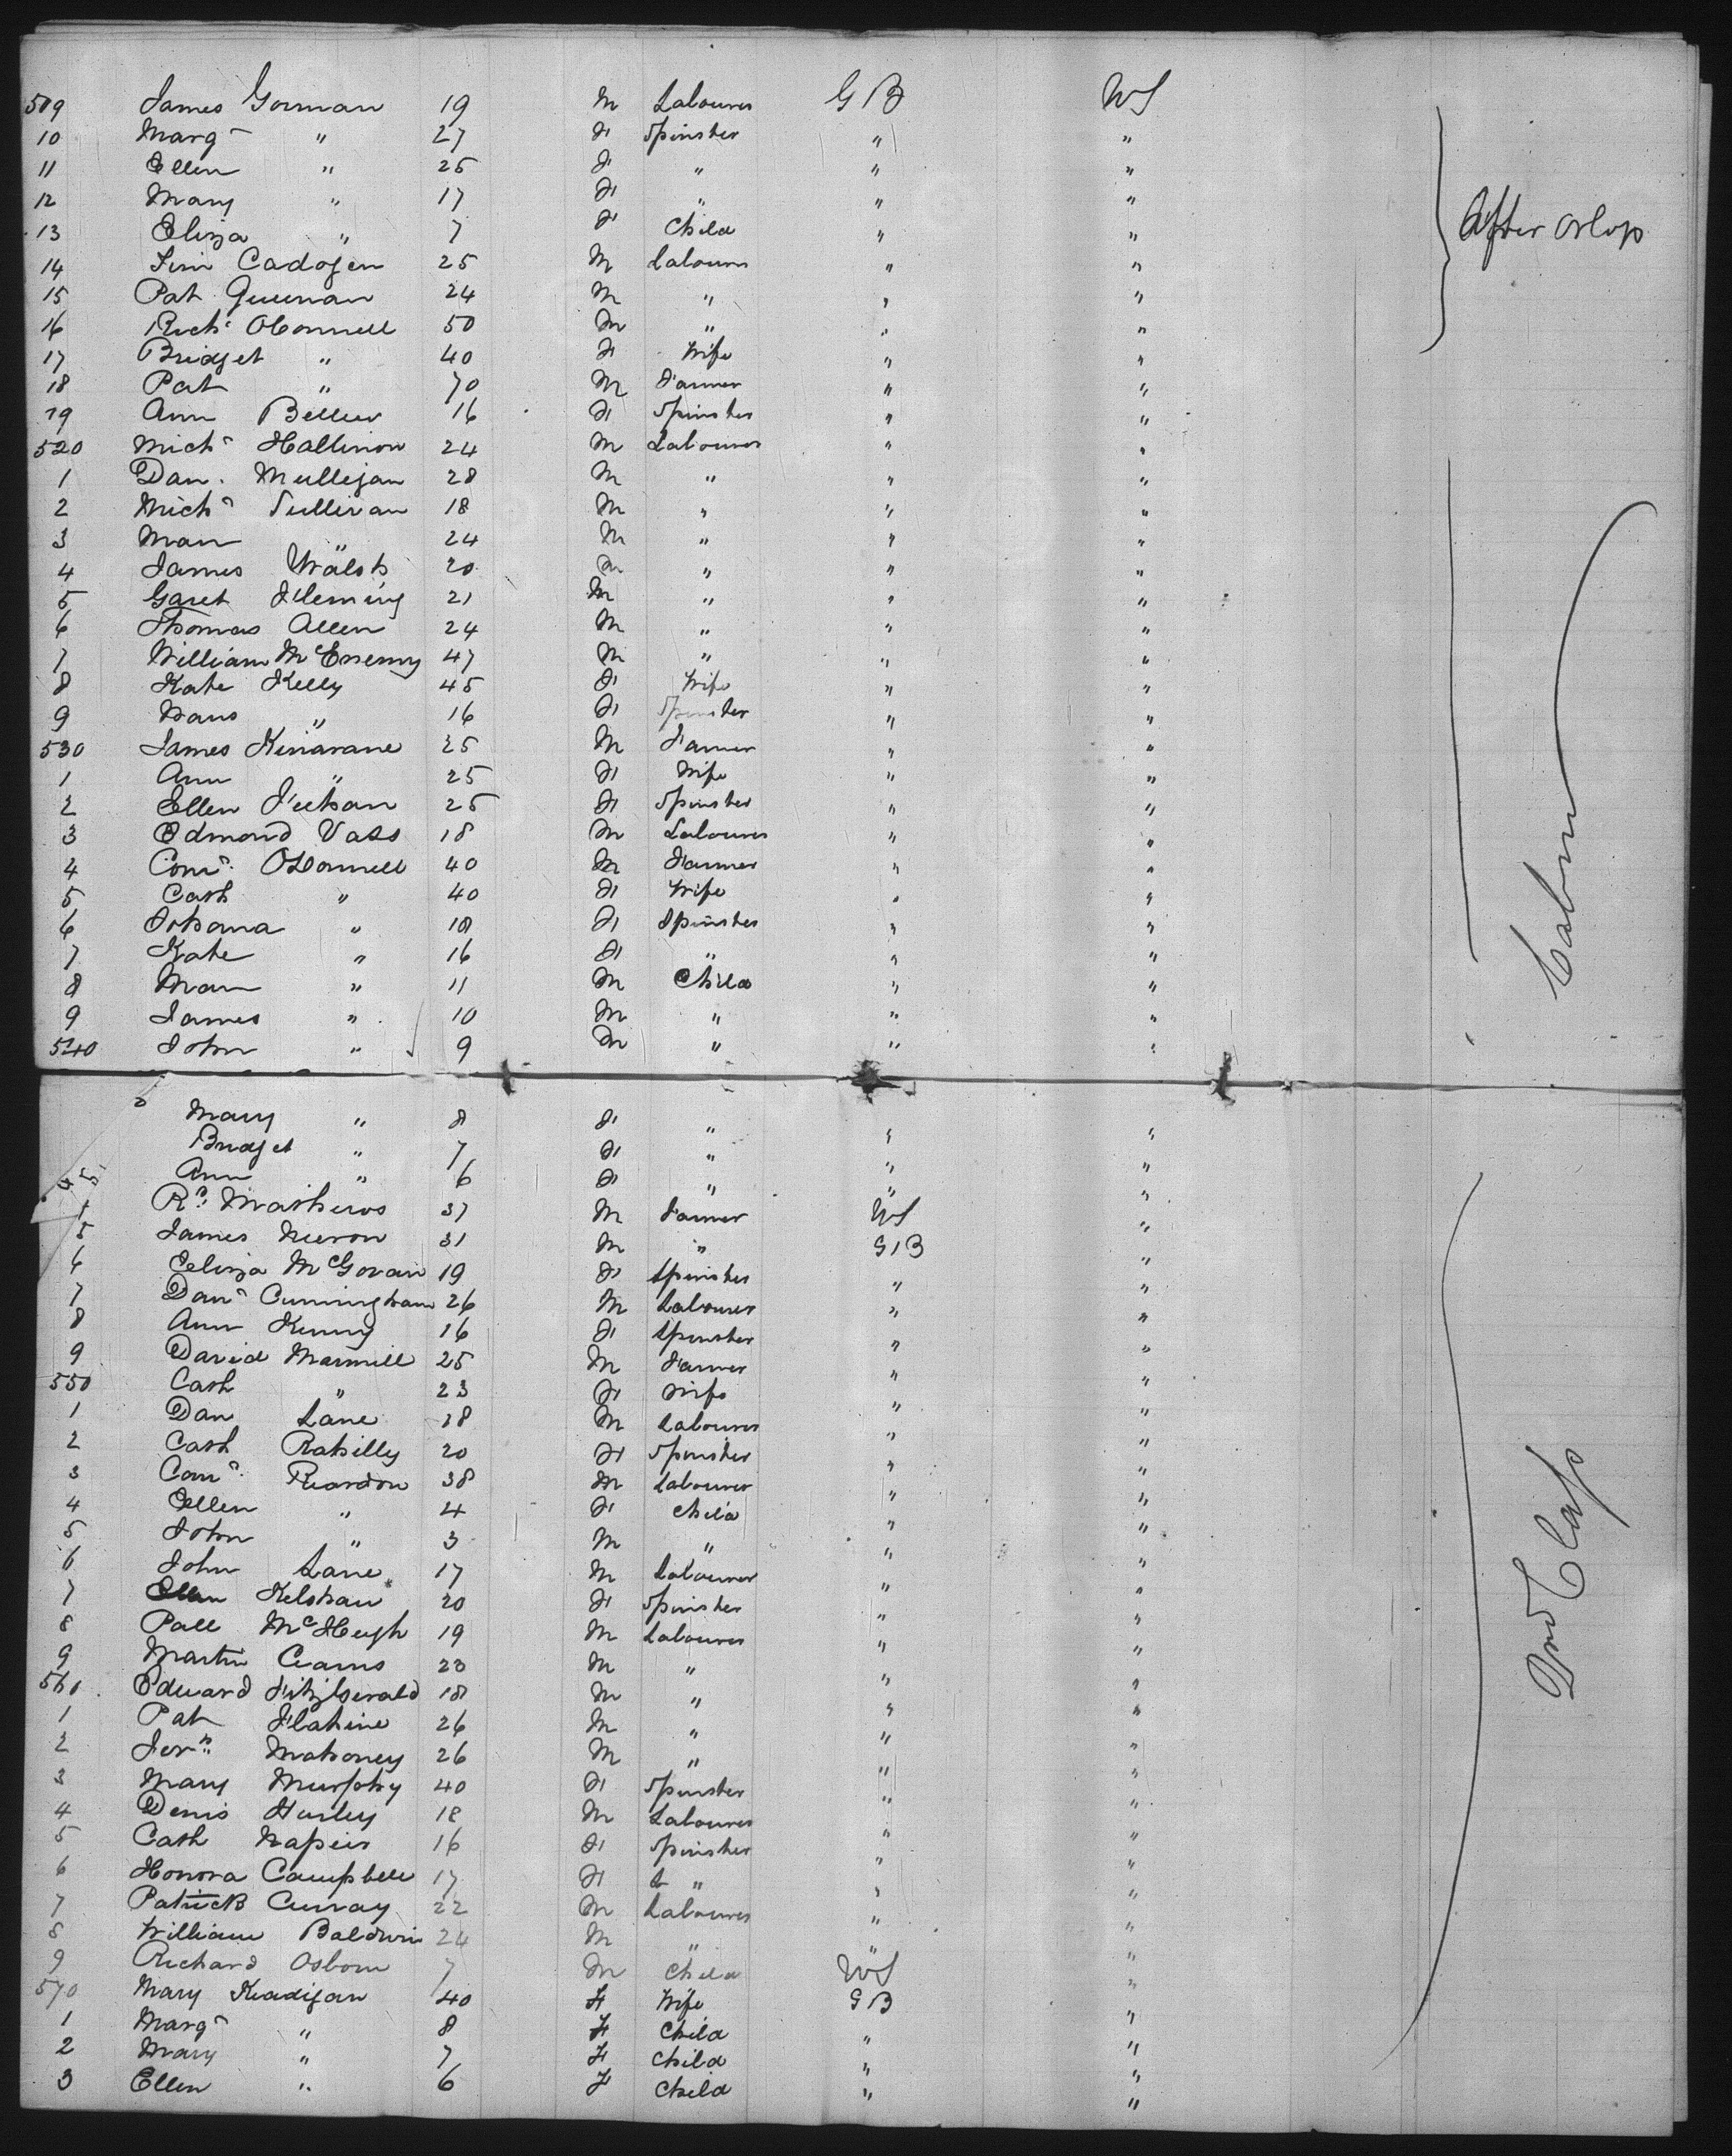 509 James Gorman 19 M Labourer GB US
10 Margt " 27 F Spinster " "
11 Ellen " 25 F " " "
12 Mary " 17 F " " "
13 Eliza " 7 F Child " " After Orlop
14 Tim Cadogen 25 M Labourer " "
15 Pat 24 M " " "
16 Richd OConnell 50 M " " "
17 Bridget " 40 F Wife " "
18 Pat " 70 M Farmer " "
19 Ann Bellew 16 F Spinster " "
520 Michl Hallinon 24 M Labourer " "
1 Danl Mulligan 28 M " " "
2 Michl Sullivan 18 M " " "
3 " 24 M " " "
4 James Walsh 20 M " " "
5 Garet Fleming 21 M " " "
6 Thomas Allen 24 M " " "
7 William 47 M " " "
8 Kate Kelly 45 F Wife " "
9 " 16 F Spinster " "
530 James Kinavane 25 M Farmer " "
1 Ann " 25 F Wife " "
2 Ellen 25 F Spinster " "
3 Edmond Vass 18 M Labourer " "
4 40 M Farmer " "
5 Cath " 40 F Wife " " Cabin
6 Johana " 18 F Spinster " "
7 Kate " 16 F " " "
8 " 11 M Child " "
9 James " 10 M " " "
540 John " 9 M " " "
Mary " 8 F " " "
Bridget " 7 F " " "
Ann " 6 F " " "
37 M Farmer US "
5 James 31 M " GB "
6 Eliza McGovan 19 F Spinster " "
7 Danl Cunningham 26 M Labourer " "
8 Ann Kenny 16 F Spinster " "
9 David 25 M Farmer " "
550 Cath " 23 F Wife " "
1 Dan Lane 18 M Labourer " "
2 Cath Rahilly 20 F Spinster " "
3 Reardon 38 M Labourer " "
4 Ellen " 4 F Child " "
5 John " 3 M " " "
6 John Lane 17 M Labourer " "
7 Ellen 20 F Spinster " "
8 McHugh 19 M Labourer " "
9 Martin 23 M " " "
560 Edward Fitzgerald 18 M " " "
1 Pat 26 M " " "
2 Jerh Mahoney 26 M " " "
3 Mary Murphy 40 F Spinster " "
4 Denis Hurley 18 M Labourer " "
5 Cath Napier 16 F Spinster " "
6 Honora Campbell 17 F " " "
7 Patrick 22 M Labourer " "
8 William Baldwin 24 M " " "
9 Richard Osborn 7 M Child US "
570 Mary Keadigan 40 F Wife GB "
1 Margt " 8 F Child " "
2 Mary " 7 F Child " "
3 Ellen " 6 F Child " "